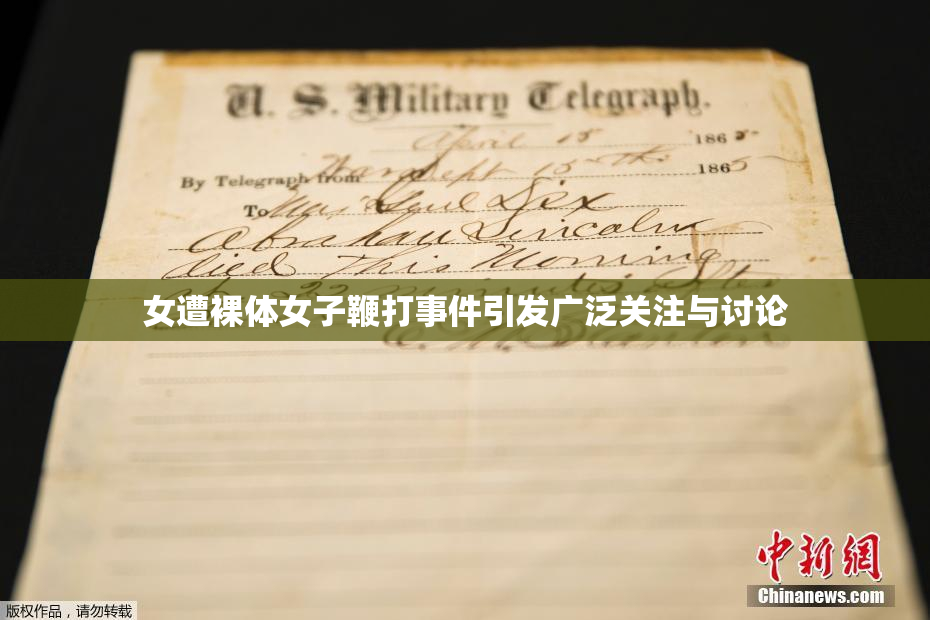 U. S. Military Telegraph.
April 15 1865
By Telegraph from War Dept 15th 1865
To Maj Genl Dix
Abraham Lincoln
died This Morning
at 22 minutes after
女遭裸体女子鞭打事件引发广泛关注与讨论
E. M. Stanton
中新网
Chinanews.com
版权作品，请勿转载